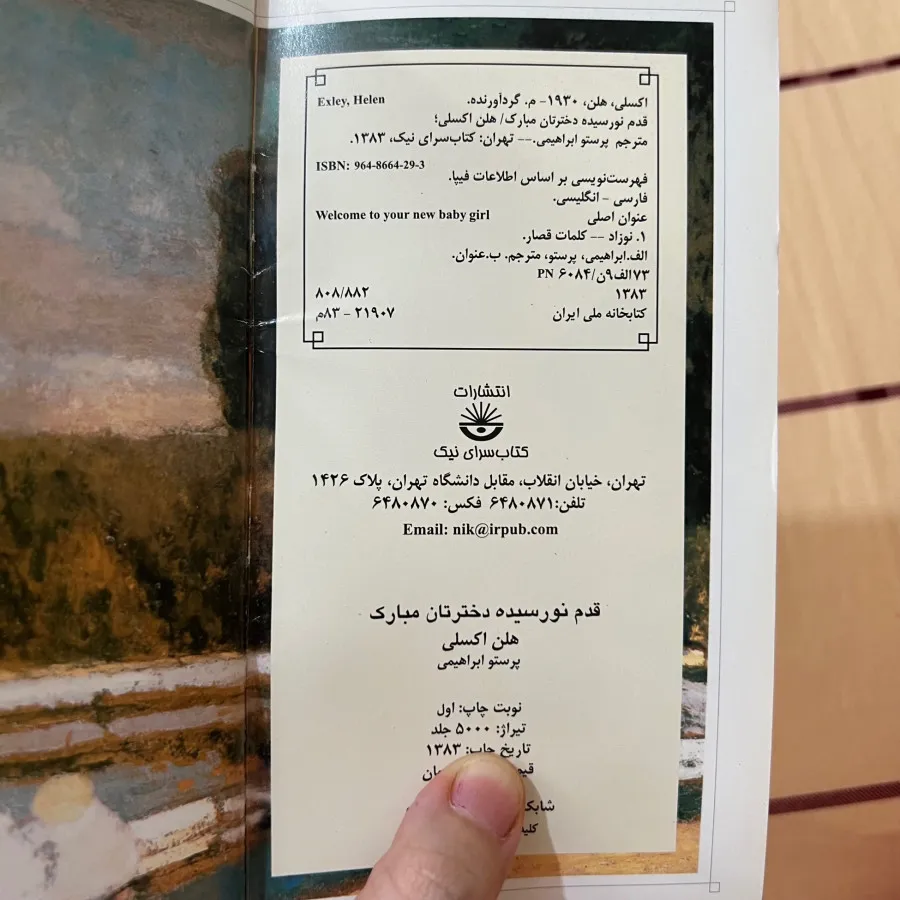 اکسلی، هلن، ۱۹۳۰- م. گردآورنده. Exley, Helen
قدم نورسیده دخترتان مبارک/ هلن اکسلی؛
مترجم پرستو ابراهیمی.-- تهران: کتاب‌سرای نیک، ۱۳۸۳.
ISBN: 964-8664-29-3
فهرست‌نویسی بر اساس اطلاعات فیپا.
فارسی - انگلیسی.
عنوان اصلی Welcome to your new baby girl
۱. نوزاد -- کلمات قصار.
الف.ابراهیمی، پرستو، مترجم. ب.عنوان.
۷۳الف۹ن/۶۰۸۴ PN
۱۳۸۳ ۸۰۸/۸۸۲
کتابخانه ملی ایران ۲۱۹۰۷ - ۸۳م
انتشارات
کتاب‌سرای نیک
تهران، خیابان انقلاب، مقابل دانشگاه تهران، پلاک ۱۴۲۶
تلفن:۶۴۸۰۸۷۱ فکس: ۶۴۸۰۸۷۰
Email: nik@irpub.com
قدم نورسیده دخترتان مبارک
هلن اکسلی
پرستو ابراهیمی
نوبت چاپ: اول
تیراژ: ۵۰۰۰ جلد
تاریخ چاپ: ۱۳۸۳